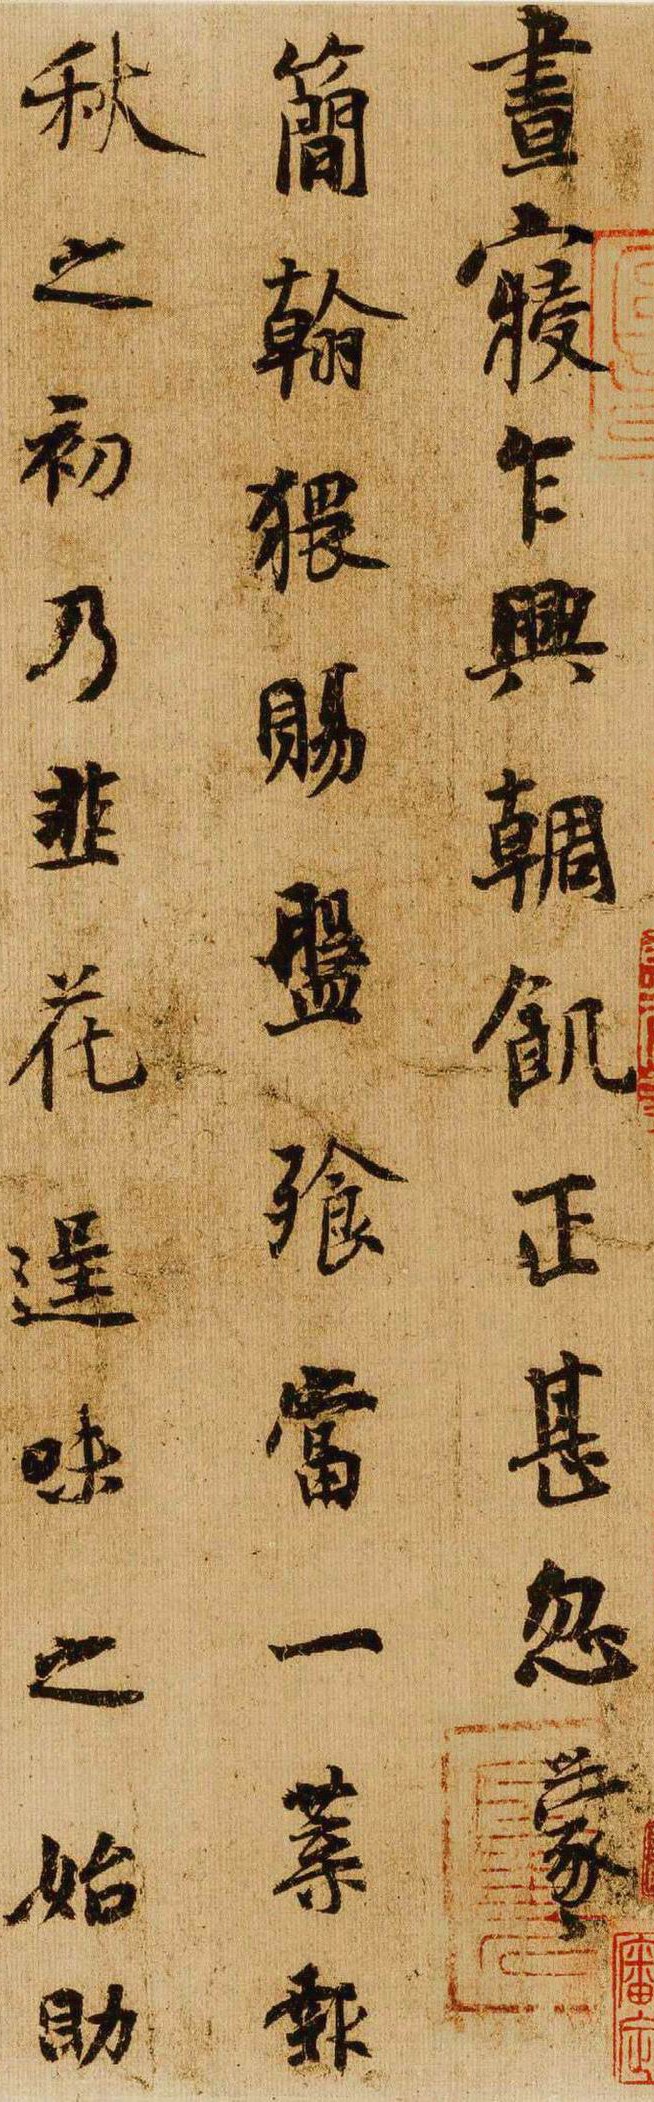 晝寢乍興朝飢正甚忽蒙
簡翰猥賜盤飧當一葉報
秋之初乃韭花逞味之始助